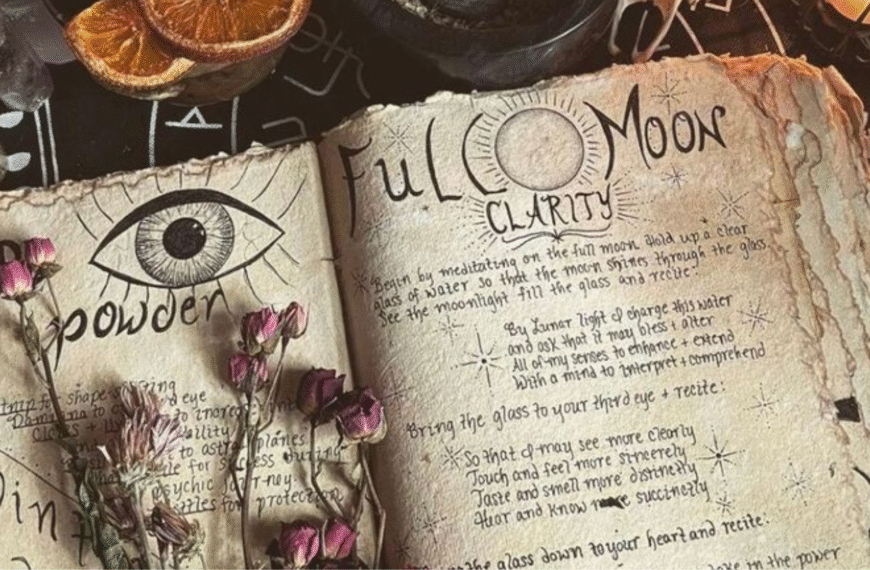 powder
shape
eye
to
to astral planes
for success during
psychic journey
for protection
in
FULL MOON
CLARITY
Begin by meditating on the full moon. Hold up a clear
glass of water so that the moon shines through the glass.
See the moonlight fill the glass and recite:
By Lunar light I charge this water
and ask that it may bless + alter
All of my senses to enhance + extend
With a mind to interpret + comprehend
Bring the glass to your third eye + recite:
So that I may see more clearly
Touch and feel more sincerely
Taste and smell more distinctly
Hear and know more succinctly
the glass down to your heart and recite:
in the power